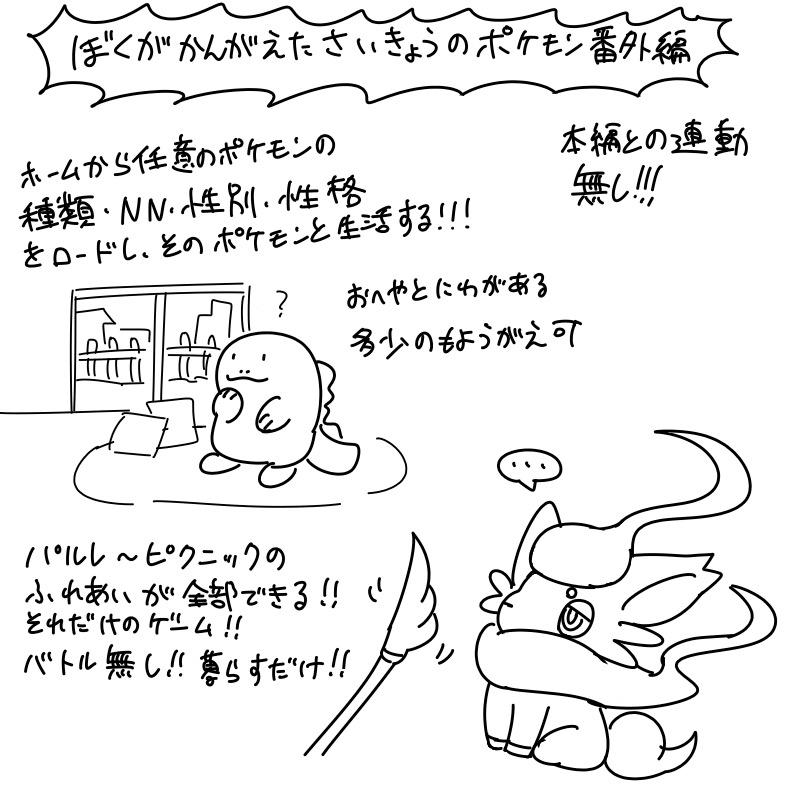 ぼくがかんがえたさいきょうのポケモン番外編
本編との連動
無し!!!
ホームから任意のポケモンの
種類・NN・性別・性格
をロードし、そのポケモンと生活する!!!
おへやとにわがある
多少のもようがえ可
?
パルレ〜ピクニックの
ふれあいが全部できる!!
それだけのゲーム!!
バトル無し!!暮らすだけ!!